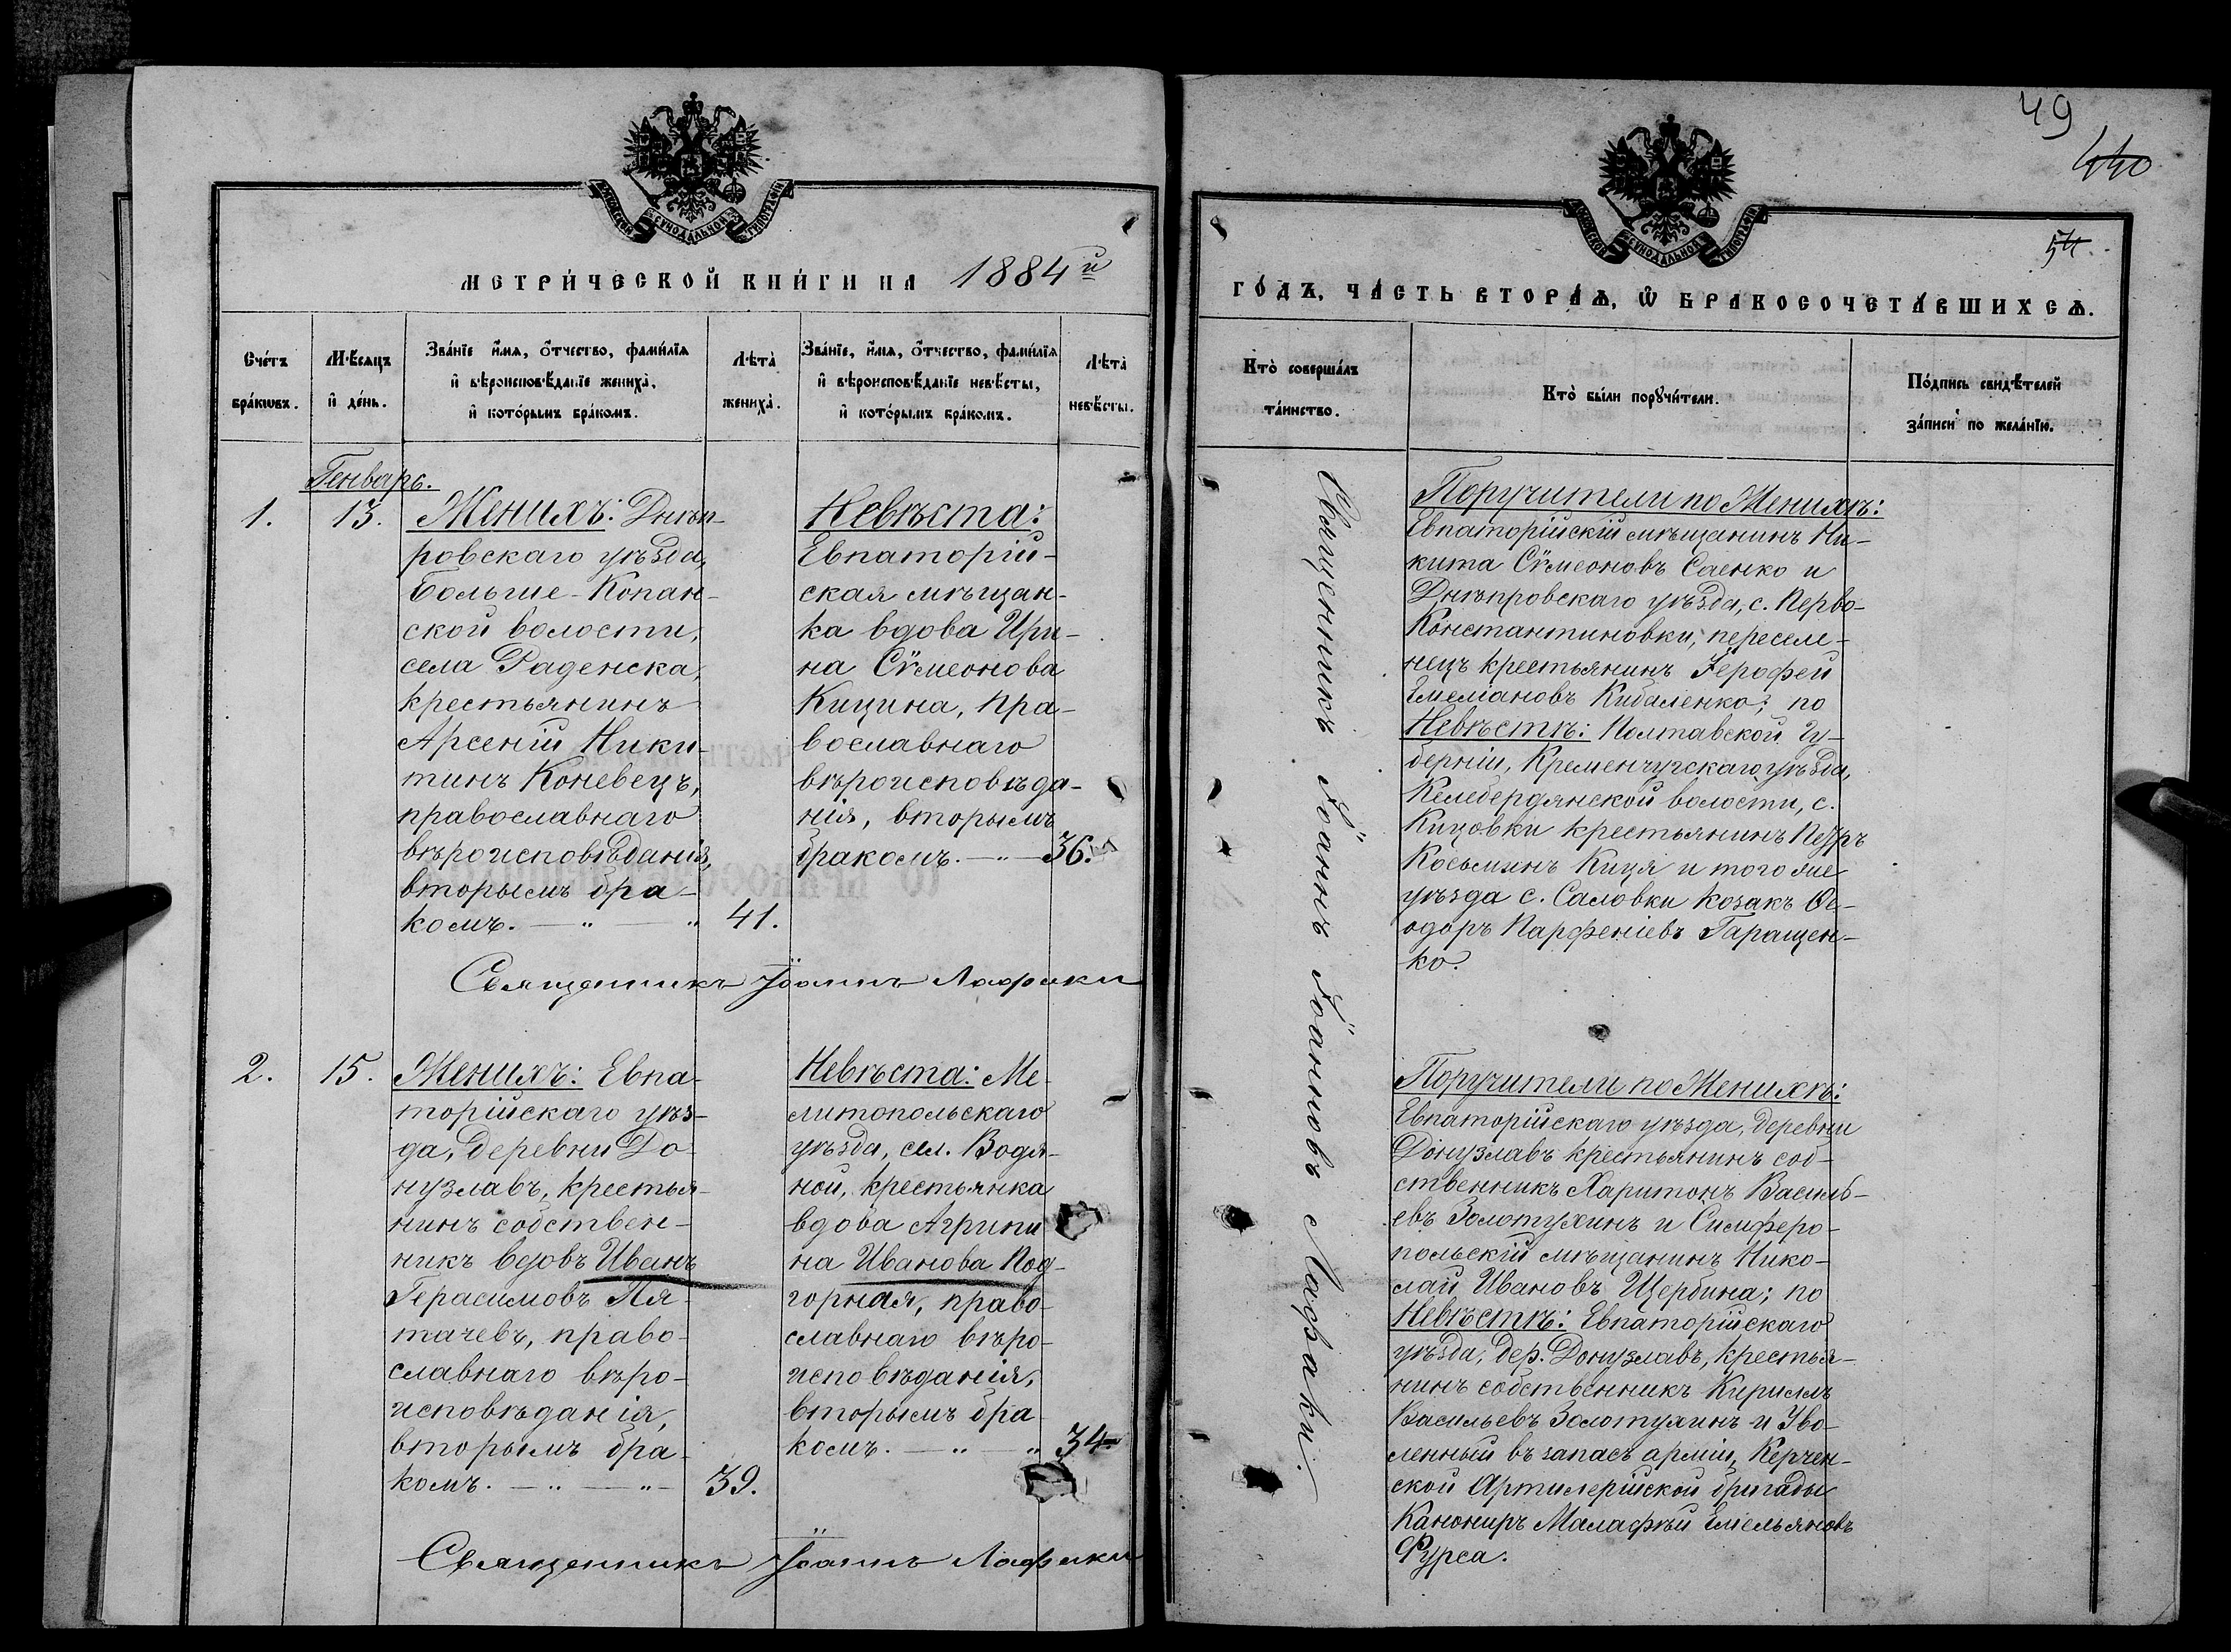 49
440
54.
МОСКОВСКОЙ СѴНОДАЛЬНОЙ ТИПОГРАФІИ
МЕТРИ́ЧЕСКОЙ КНИ́ГИ НА 1884й
Сче́тъ
бра́кωвъ.
Мѣ́сяцъ
и҆ де́нь.
Зва́нїе и҆́мѧ, ѻ҆́тчество, фами́лїѧ
и҆ вѣроисповѣ́данїе жениха̀,
и҆ кото́рымъ бра́комъ.
Лѣ́та
жениха̀.
Зва́нїе, и҆́мѧ, ѻ҆́тчество, фами́лїѧ
и҆ вѣроисповѣ́данїе невѣ́сты,
и҆ кото́рымъ бра́комъ.
Лѣ́та
невѣ́сты.
Генварь.
1.
13.
Женихъ: Днѣп-
ровскаго уѣзда,
Больше-Копан-
ской волости,
села Раденска,
крестьянинъ
Арсеній Ники-
тинъ Коневецъ,
православнаго
вѣроисповѣданія,
вторымъ бра-
комъ. — " — "
41.
Невѣста:
Евпаторій-
ская мѣщан-
ка вдова Ири-
на Сѵмеонова
Кицина, пра-
вославнаго
вѣроисповѣда-
нія, вторымъ
бракомъ. — " —
36.
Священникъ Іоаннъ Лафаки
2.
15.
Женихъ: Евпа-
торійскаго уѣз-
да, деревни До-
нузлавъ, крестья-
нинъ собствен-
никъ вдовъ Иванъ
Герасимовъ Пя-
тачевъ, право-
славнаго вѣро-
исповѣданія,
вторымъ бра-
комъ. — " — " —
39.
Невѣста: Ме-
литопольскаго
уѣзда, сел. Водя-
ной, крестьянка
вдова Агрипи
на Иванова Под-
горная, право-
славнаго вѣро-
исповѣданія,
вторымъ бра-
комъ. — " — "
34
Священникъ Іоаннъ Лафаки
МОСКОВСКОЙ СѴНОДАЛЬНОЙ ТИПОГРАФІИ
ГО́ДЪ, ЧА́СТЬ ВТОРА́Ѧ, Ѽ БРАКОСОЧЕТА́ВШИХСѦ.
Кто̀ соверша́лъ
та́инство.
Кто̀ бы́ли порꙋчи́тели.
По́дпись свидѣ́телей
за́писи по жела́нїю.
Священникъ Іоаннъ Іоанновъ Лафаки.
Поручители по Женихѣ:
Евпаторійскій мѣщанинъ Ни-
кита Сѵмеоновъ Саенко и
Днѣпровскаго уѣзда, с. Перво-
Константиновки, переселе-
нецъ крестьянинъ Іерофей
Емеліановъ Кибаленко; по
Невѣстѣ: Полтавской Гу-
берніи, Кременчугскаго уѣзда,
Келебердянской волости, с.
Кицовки крестьянинъ Петръ
Косьминъ Киця и того же
уѣзда с. Саловки козакъ Ѳе-
одоръ Парѳеніевъ Таращен-
ко.
Поручители по Женихѣ:
Евпаторійскаго уѣзда, деревни
Донузлавъ крестьянинъ соб-
ственникъ Харитонъ Василь-
евъ Золотухинъ и Симферо-
польскій мѣщанинъ Нико-
лай Ивановъ Щербина; по
Невѣстѣ: Евпаторійскаго
уѣзда, дер. Донузлавъ, крестья-
нинъ собственникъ Кириллъ
Васильевъ Золотухинъ и Уво-
ленный въ запасъ арміи, Керчен-
ской Артилерійской бригады
Канониръ Малафѣй Емельяновъ
Фурса.